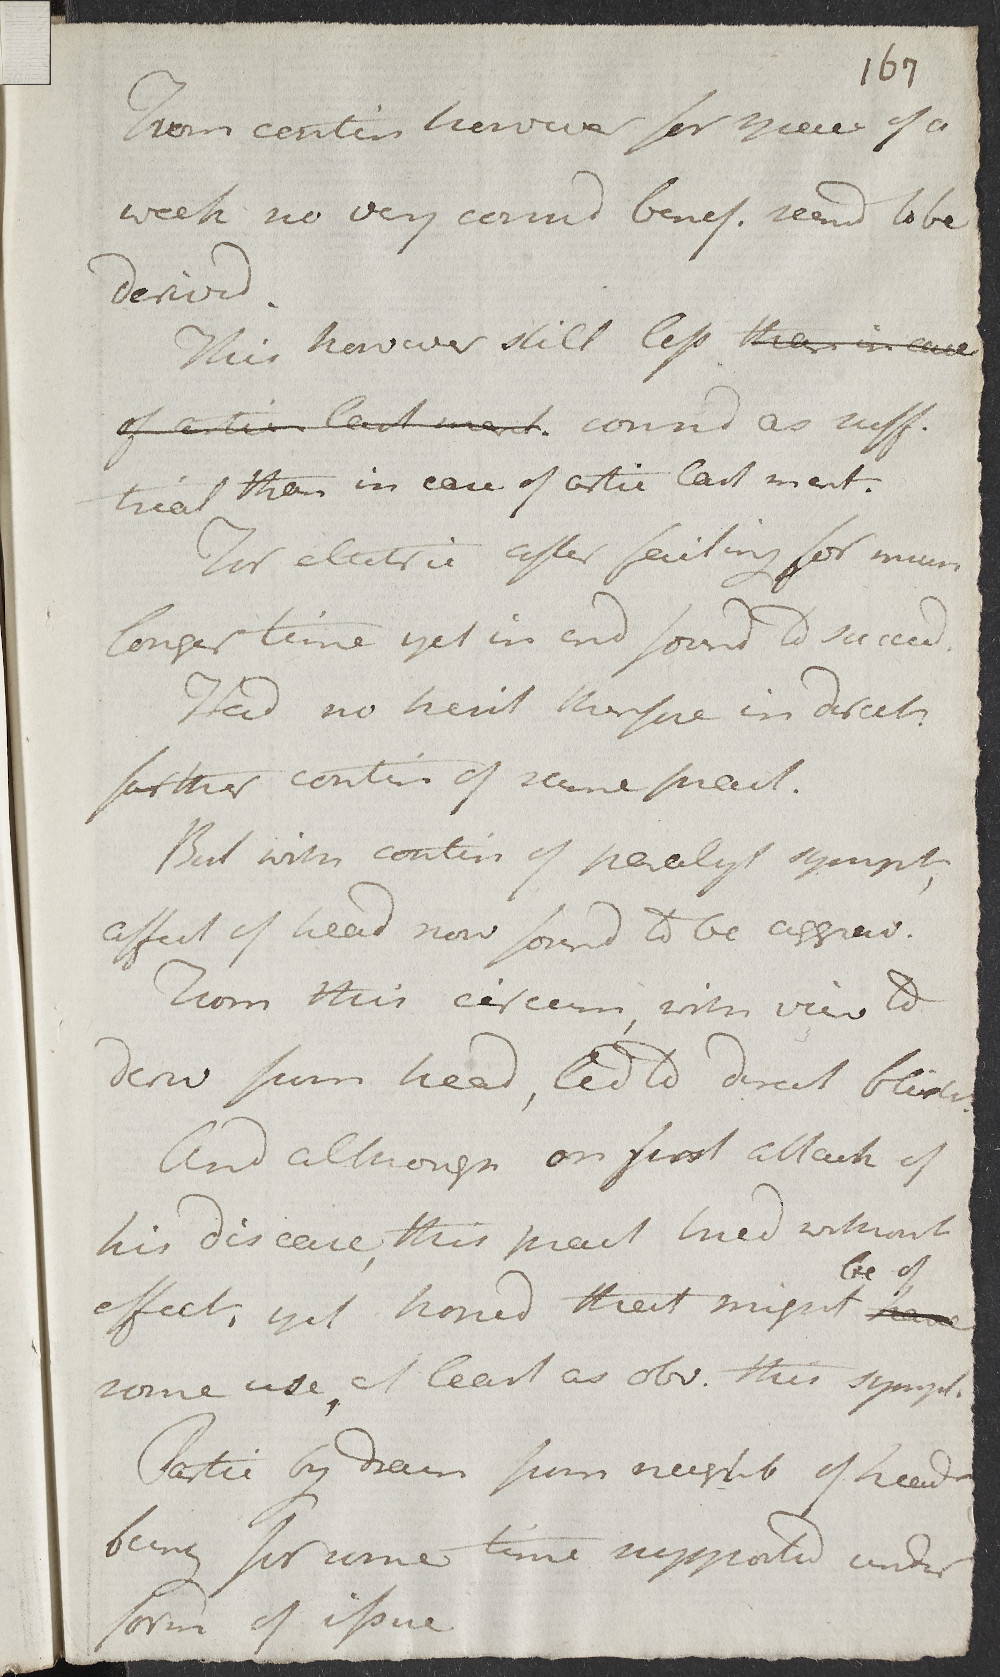 167
From contin however for space of a
week no very consid benef. seemd to be
derived.
This however still less than in case
of artic last ment. consid as suff.
trial than in case of artic last ment.
For electric after failing for mum
longer time yet in end found to succeed.
Had no hesit therefore in direct.
further contin of same pract.
But with contin of paralyt sympt,
affect of head now found to be aggrav.
From this circum, with view to
deriv from head, led to direct blister.
And although on first attack of
his disease, this pract tried without
effect, yet hoped that might have be of
some use, at least as obv. this sympt.
Partic by drain from neighb of head
being for some time supported under
form of issue